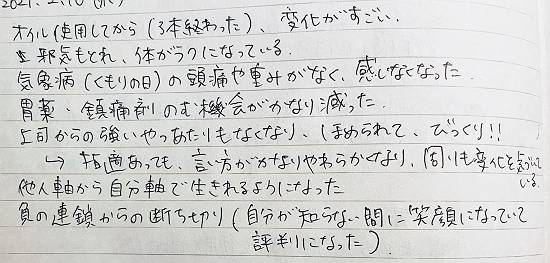 オイル使用してから(3本終わった)、変化がすごい。
邪気もとれ、体がラクになっている。
気象病(くもりの日)の頭痛や重みがなく、感じなくなった
胃薬・鎮痛剤のむ機会がかなり減った.
上司からの強いやつあたりもなくなり、ほめられて、びっくり!!
→ 指摘あっても、言い方がかなりやわらかくなり、周りも変化を気づいている.
他人軸から自分軸で生きれるようになった
負の連鎖からの断ち切り(自分が知らない間に笑顔になっていて
評判になった)